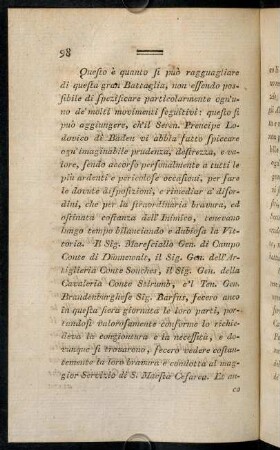 98
Questo è quanto si può ragguagliare
di questa gran Battaglia, non essendo pos-
sibile di spezificare particolarmente ogn'u-
no de' molti movimenti seguitivi: questo si
può aggiungere, ch'il Seren. Prencipe Lo-
dovico di Baden vi abbia fatto spiccare
ogni imaginabile prudenza, destrezza, e va-
lore, sendo accorso personalmente a tutti le
più ardenti e pericolose occasioni, per fare
le dovute disposizioni, e rimediar a' disor-
dini, che per la straordinaria bravura, ed
ostinata costanza dell'Inimico, tenevano
lungo tempo bilanciando e dubiosa la Vit-
toria. Il Sig. Maresciallo Gen. di Campo
Conte di Dünnewalt, il Sig. Gen. dell'Ar-
tiglieria Conte Souches, il Sig. Gen. della
Cavaleria Conte Stirumb, e'l Ten. Gen.
Brandenburghese Sig. Barfus, fecero anco
in questa fiera giornata le loro parti, por-
tandosi valorosamente conforme lo richie-
deva la congiontura e la necessità, e do-
vunque si trovarono, fecero vedere costan-
temente la loro bravura e condotta al mag-
gior Servizio di S. Maestà Cesarea. Et an-
co